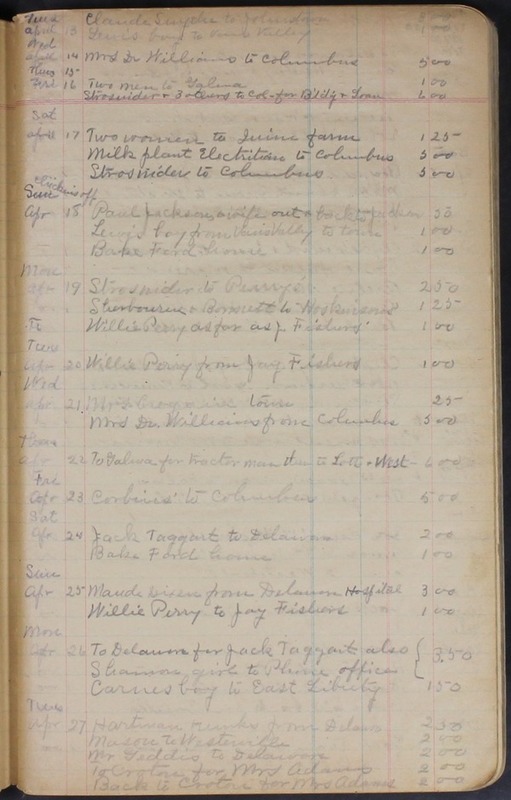 Tues
April 13 Claude Smythe to Johnstown
Lewis boy to Vans Valley 1 00
Wed
April 14 Mrs Dr Williams to Columbus 5 00
Thurs 15
Fri 16 Two men to Galena 1 00
Strosnider & 3 others to Col - for Bldg & Loan 6 00
Sat
April 17 Two women to farm 1 25
Milk plant Electrition to Columbus 5 00
Strosnider to Columbus 5 00
Sun
Apr 18 Paul Jackson & wife out & back 50
Lewis boy from Vans Valley to town 1 00
Bake Ford home 1 00
Mon
Apr 19 Strosnider to Perry's 2 50
Sherbourne & Bennett to Hoskinsons 1 25
Willie Perry as far as J. Fishers 1 00
Tues
Apr 20 Willie Perry from Jay Fishers 1 00
Wed
Apr 21 Mrs town 25
Mrs Dr. Williams from Columbus 5 00
Thurs
Apr 22 To Galena for tractor man then to Lott & West 6 00
Fri
Apr 23 Corbins' to Columbus 5 00
Sat
Apr 24 Jack Taggart to Delaware 2 00
Bake Ford home 1 00
Sun
Apr 25 Maude Dixen from Delaware Hospital 3 00
Willie Perry to Jay Fishers 1 00
Mon
Apr 26 To Delaware for Jack Taggart also
Shannon girl to Phone office 3.50
Carnes boy to East Liberty 1 50
Tues
Apr 27 Hartman trunks from Delawr 2 50
Mason to Westerville 2 00
Mr Geddis to Delaware 2 00
To Croton for Mrs Adams 2 00
Back to Croton for Mrs Adams 2 00